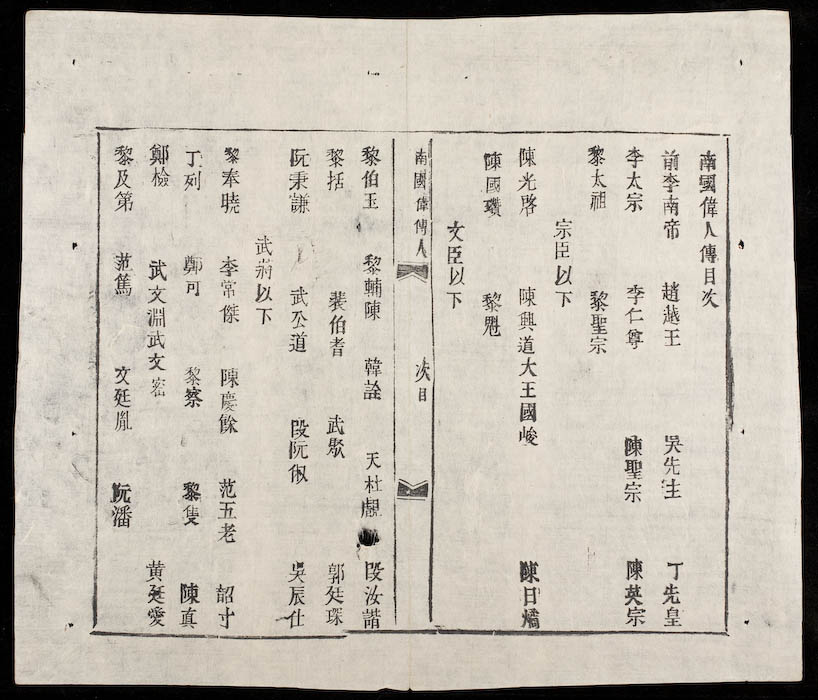 南國偉人傳目次
前李南帝 趙越王 吳先主 丁先皇
李太宗 李仁尊 陳聖宗 陳英宗
黎太祖 黎聖宗
宗臣以下
陳光啓 陳興道大王國峻 陳日燏
陳國瓚 黎魁
文臣以下
南國偉傳人 次目
黎伯玉 黎輔陳 韓詮 天杜覩 段汝諧
黎括 裴伯耆 武聚 郭廷琛
阮秉謙 武公道 段阮俶 吳辰仕
武將以下
黎奉曉 李常傑 陳慶餘 范五老 韶寸
丁列 鄭可 黎察 黎隻 陳真
鄭檢 武文淵武文密 黃廷愛
黎及第 范篤 文廷胤 阮潘